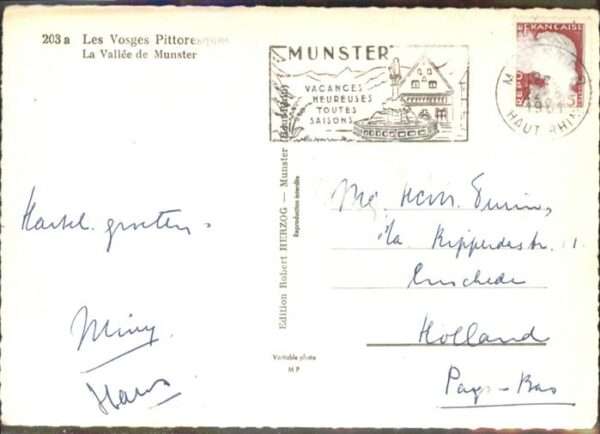 203a Les Vosges Pittoresques
La Vallée de Munster
MUNSTER
VACANCES
HEUREUSES
TOUTES
SAISONS
FRANÇAISE
HAUT RHIN
Edition Robert HERZOG — Munster
Reproduction interdite
Véritable photo
M P
Hartel. groeten
Miny
Hans
Ripperdastr. 1
Enschede
Holland
Pays-Bas